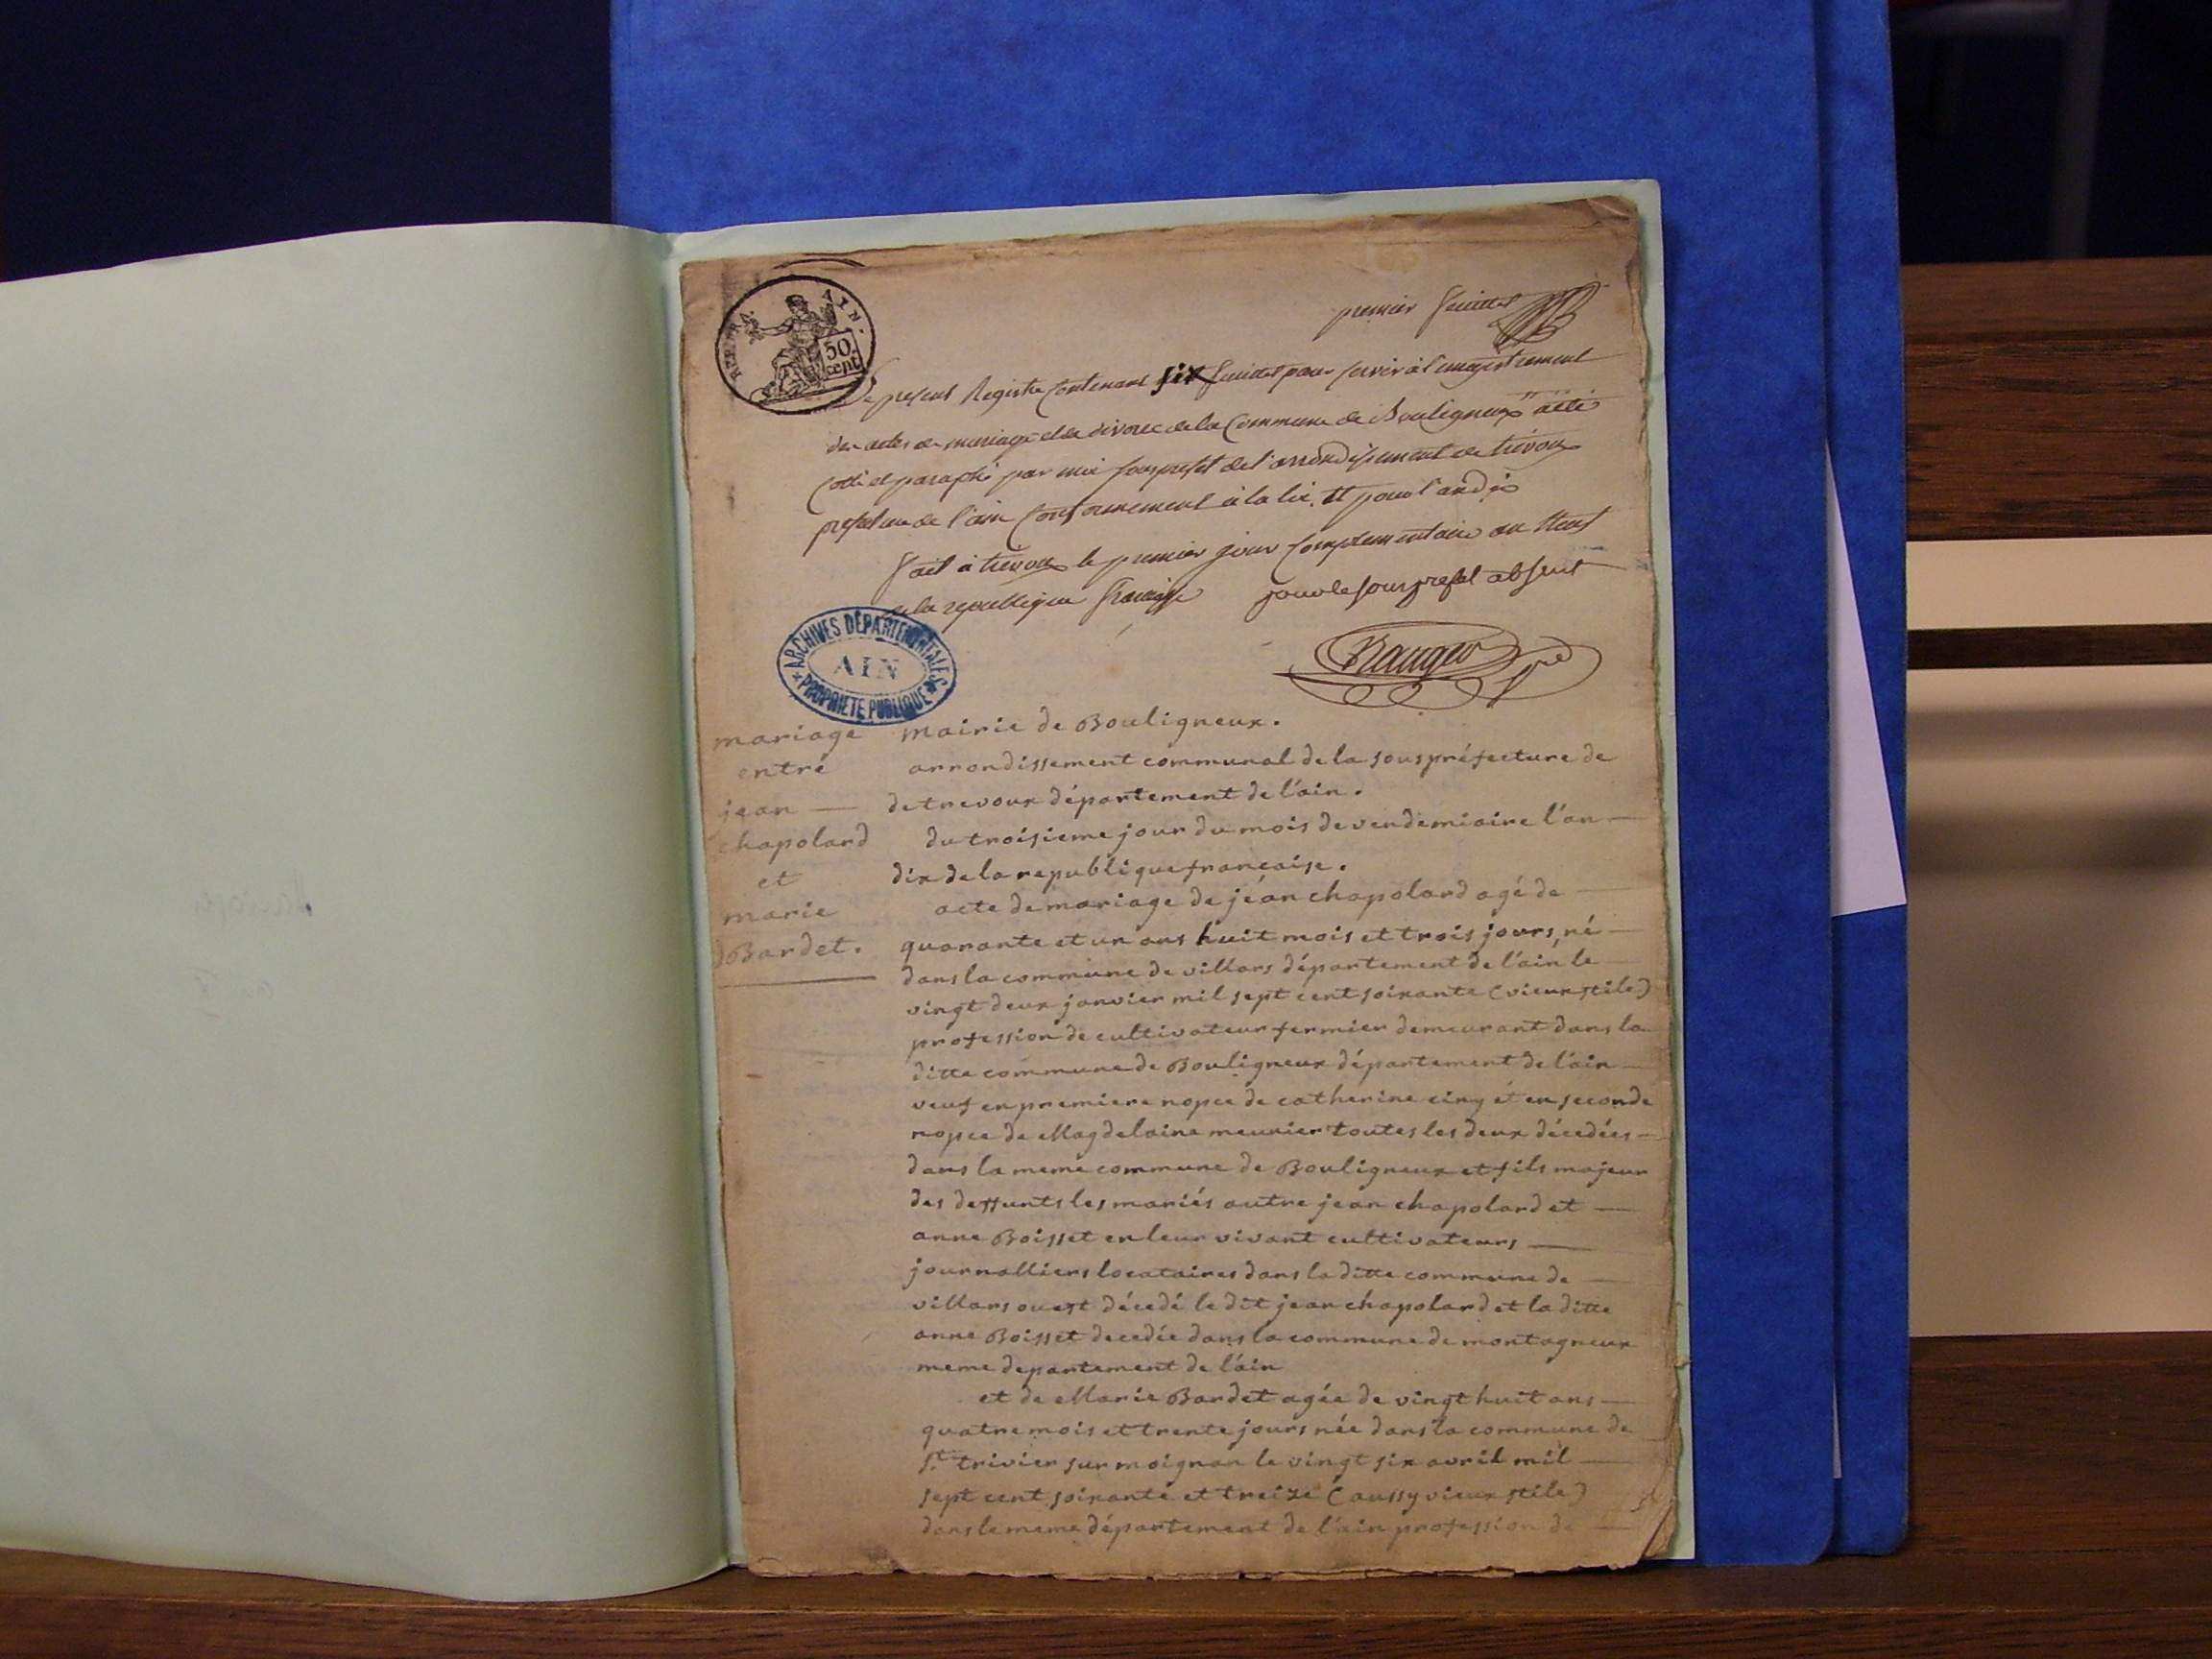 REP. FRA. AIN.
50 cent
premier feuillet
Le present Registre Contenant six feuillet pour servir à l'enregistrement
des actes de mariage et de divorce de la Commune de Bouligneux a été
Cotté et paraphé par moi sousprefet de l'arrondissement de trevoux
prefecture de l'ain Conformement à la loi, et pour l'an dix
fait à trevoux le premier jour Complementaire an neuf
de la republique française pour le sousprefet absent
ARCHIVES DÉPARTEMENTALES
AIN
PROPRIÉTÉ PUBLIQUE
mariage
entre
jean
chapolard
et
marie
Bardet.
mairie de Bouligneux.
arrondissement communal de la souspréfecture de
de trevoux département de l'ain.
du troisieme jour du mois de vendemiaire l'an
dix de la republique française.
acte de mariage de jéan chapolard agé de
quarante et un ans huit mois et trois jours, né
dans la commune de villars département de l'ain le
vingt deux janvier mil sept cent soixante (vieux stile)
profession de cultivateur fermier demeurant dans la
ditte commune de Bouligneux département de l'ain
veuf en premiere nopce de catherine ciny et en seconde
nopce de Magdelaine meunier toutes les deux décedées
dans la meme commune de Bouligneux et fils majeur
des deffunts les mariés autre jean chapolard et
anne Boisset en leur vivant cultivateurs
journalliers locataires dans la ditte commune de
villars ou est décedé le dit jean chapolard et la ditte
anne Boisset decedée dans la commune de montagneux
meme departement de l'ain
et de Marie Bardet agée de vingt huit ans
quatre mois et trente jours née dans la commune de
St. trivier sur moignan le vingt six avril mil
sept cent soixante et treize (aussy vieux stile)
dans le meme département de l'ain profession de